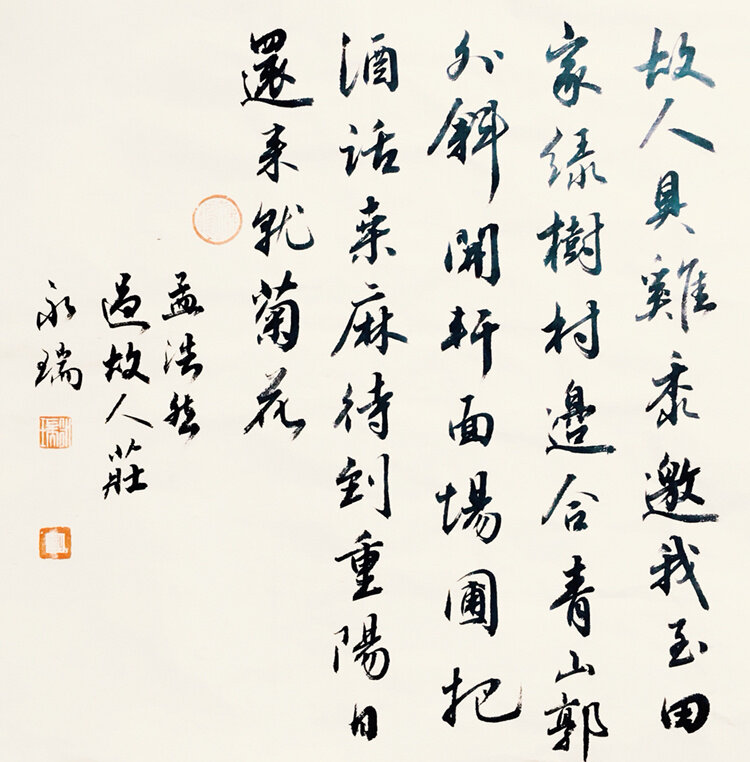 故人具雞黍邀我至田
家綠樹村邊合青山郭
外斜開軒面場圃把
酒話桑麻待到重陽日
還来就菊花
孟浩然
過故人莊
永瑞